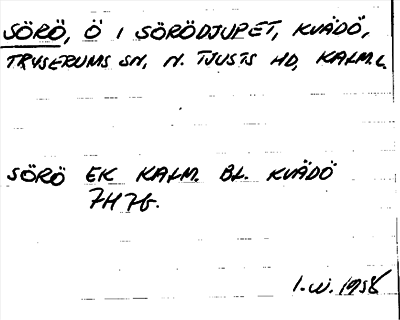 SÖRÖ, Ö I SÖRÖDJUPET, KVÄDÖ,
TRYSERUMS SN, N. TJUSTS HD, KALM. L.
SÖRÖ EK KALM. BL. KVÄDÖ
7H 7G.
1.VI. 1958